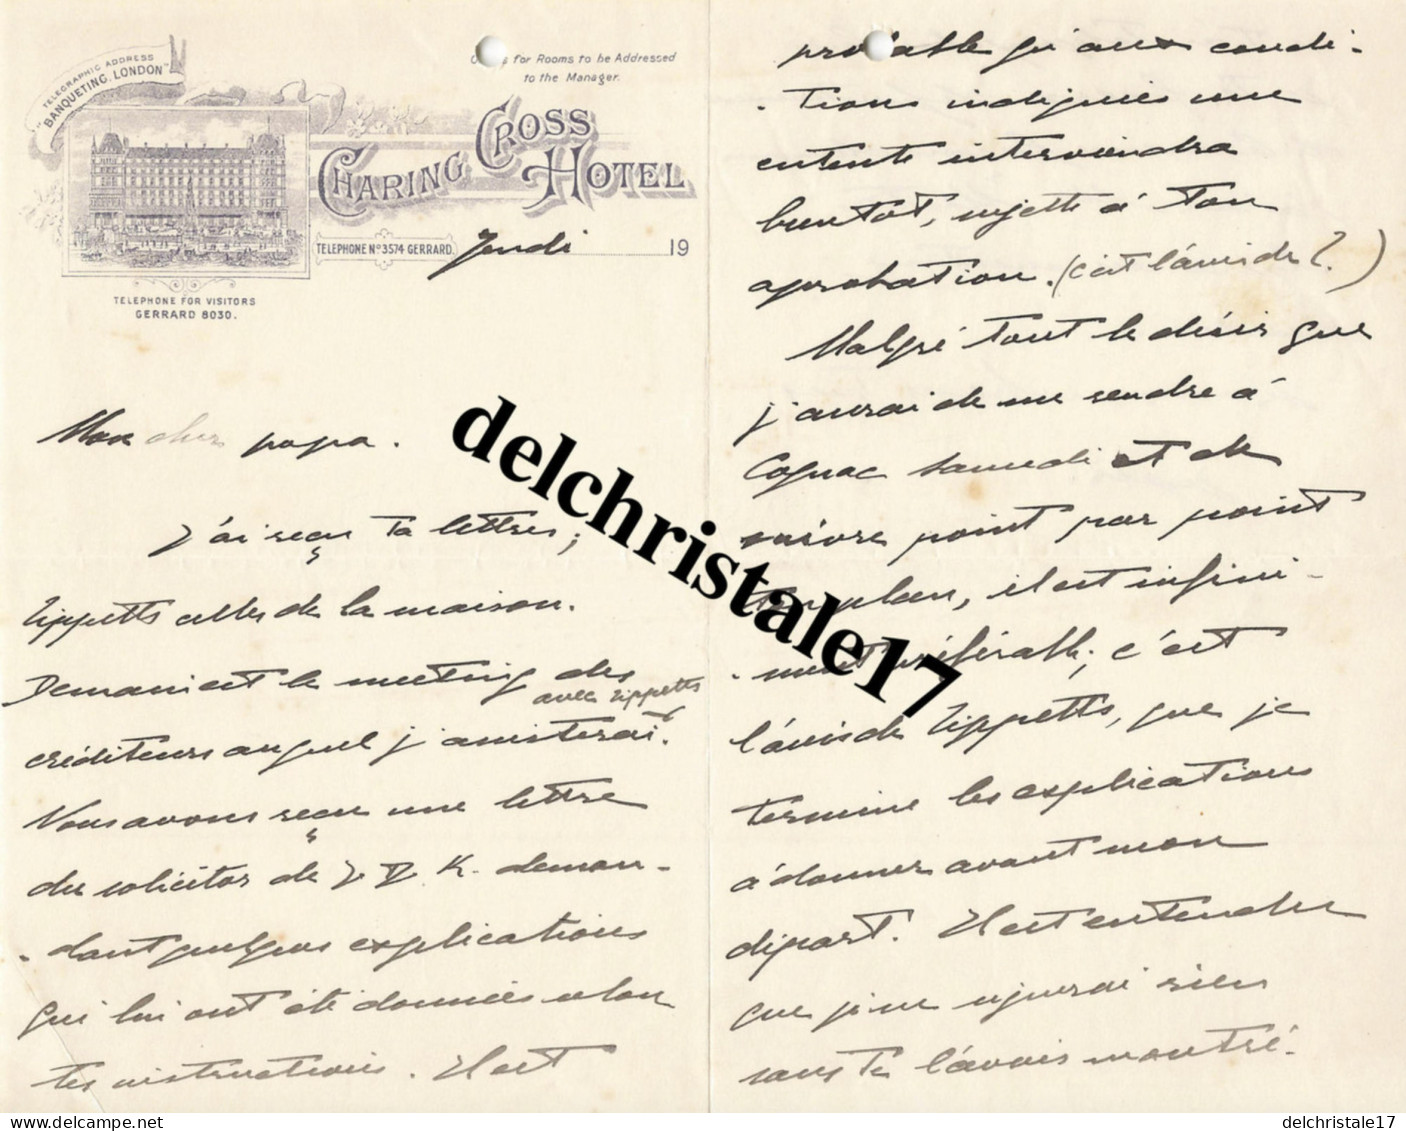 TELEGRAPHIC ADDRESS
"BANQUETING, LONDON"
for Rooms to be Addressed
to the Manager.
CHARING CROSS HOTEL
TELEPHONE Nº 3574 GERRARD.
Jeudi 19
TELEPHONE FOR VISITORS
GERRARD 8030.
Mon cher papa.
J'ai reçu ta lettres,
Tippetts celles de la maison.
Demain est le meeting des
créditeurs auquel j'assisterai avec Tippetts.
Nous avons reçu une lettre
du solicitor de J. D. K. deman-
-dant quelques explications
qui lui ont été données selon
tes instructions. Il est
probable qu'aux condi-
-tions indiquées une
entente interviendra
bientot, sujette à ton
aprobation. (c'est l'avis de ?.)
Malgré tout le désir que
j'aurai de me rendre à
Cognac samedi et de
suivre point par point
ton plan, il est infini-
-ment préférable; c'est
l'avis de Tippetts, que je
termine les explications
à donner avant mon
départ. Il est entendu
que je ne signerai rien
sans te l'avoir montré.
delchristale17
delchristale17